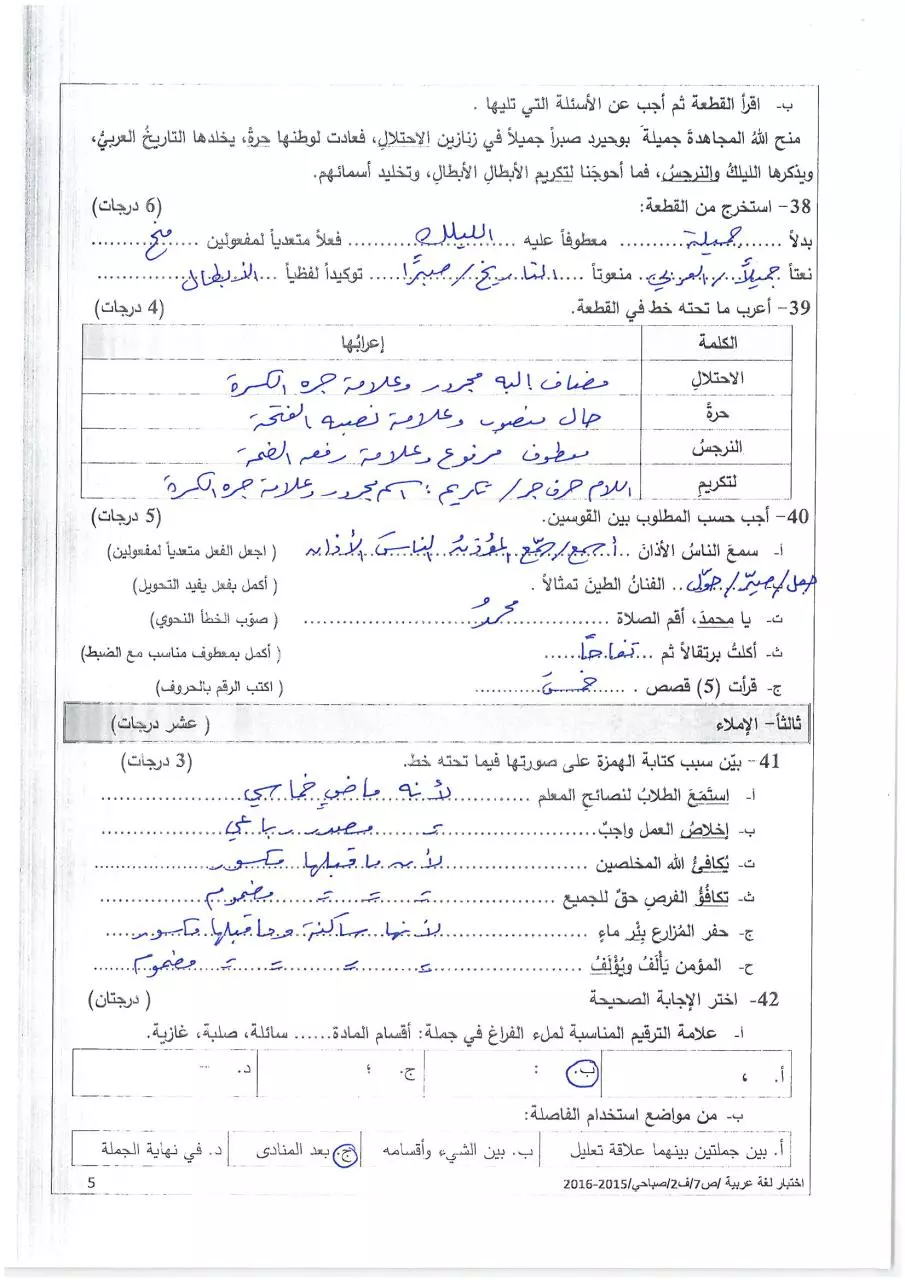 ب- اقرأ القطعة ثم أجب عن الأسئلة التي تليها .
منح اللهُ المجاهدةَ جميلةَ بوحيرد صبراً جميلاً في زنازين الاحتلالِ، فعادت لوطنها حرةً، يخلدها التاريخُ العربيُّ،
ويذكرها الليلكُ والنرجسُ، فما أحوجَنا لتكريمِ الأبطالِ الأبطالِ، وتخليد أسمائهم.
38- استخرج من القطعة: (6 درجات)
بدلاً ....... جميلة .......... معطوفاً عليه ... الليلك .......... فعلاً متعدياً لمفعولين ....... منح .......
نعتاً جميلاً / العربي منعوتاً .... التاريخ / صبرًا ..... توكيداً لفظياً ... الأبطال ..........
39- أعرب ما تحته خط في القطعة. (4 درجات)
الكلمة إعرابُها
الاحتلالِ مضاف إليه مجرور وعلامة جره الكسرة
حرةً حال منصوب وعلامة نصبه الفتحة
النرجسُ معطوف مرفوع وعلامة رفعه الضمة
لتكريمِ اللام حرف جر / تكريم : اسم مجرور وعلامة جره الكسرة
40- أجب حسب المطلوب بين القوسين. (5 درجات)
أ- سمعَ الناسُ الأذانَ .. أسمع / سمّع المؤذنُ الناسَ الأذانَ ( اجعل الفعل متعدياً لمفعولين)
جعل / صيّر / حوّل .. الفنانُ الطينَ تمثالاً . ( أكمل بفعل يفيد التحويل)
ت- يا محمدَ، أقم الصلاة .......... محمدُ .......... ( صوّب الخطأ النحوي)
ث- أكلتُ برتقالاً ثم ... تفاحًا ...... ( أكمل بمعطوف مناسب مع الضبط)
ج- قرأت (5) قصص . ...... خمسَ .......... ( اكتب الرقم بالحروف)
ثالثاً- الإملاء ( عشر درجات)
41- بيّن سبب كتابة الهمزة على صورتها فيما تحته خط. (3 درجات)
أ- إستَمَعَ الطلابُ لنصائحِ المعلم .......... لأنه ماضٍ خماسي ..........
ب- إخلاصُ العمل واجبٌ .......... = مصدر رباعي ..........
ت- يُكافئُ الله المخلصين .......... لأن ما قبلها مكسور ..........
ث- تكافُؤُ الفرصِ حقٌ للجميع .......... = = = مضموم ..........
ج- حفر المُزارع بِئْر ماءٍ .......... لأنها ساكنة وما قبلها مكسور .....
ح- المؤمن يَألَفُ ويُؤْلَفُ .......... = = = = مضموم ..........
42- اختر الإجابة الصحيحة ( درجتان)
أ- علامة الترقيم المناسبة لملء الفراغ في جملة: أقسام المادة...... سائلة، صلبة، غازية.
أ. ، ب. : ج. ؛ د. ...
ب- من مواضع استخدام الفاصلة:
أ. بين جملتين بينهما علاقة تعليل ب. بين الشيء وأقسامه ج. بعد المنادى د. في نهاية الجملة
اختبار لغة عربية /ص7/ف2/صباحي/2015-2016 5